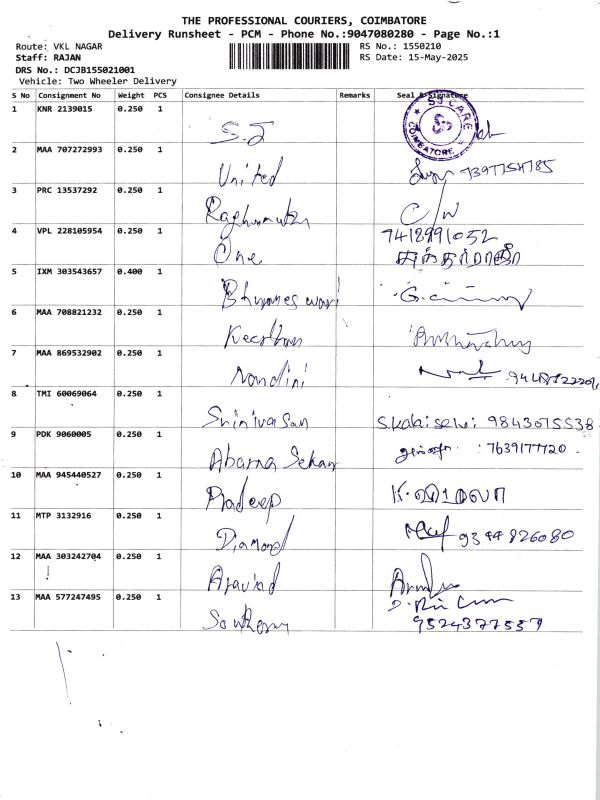 THE PROFESSIONAL COURIERS, COIMBATORE
Delivery Runsheet - PCM - Phone No.:9047080280 - Page No.:1
Route: VKL NAGAR
RS No.: 1550210
Staff: RAJAN
RS Date: 15-May-2025
DRS No.: DCJB155021001
Vehicle: Two Wheeler Delivery
S No Consignment No Weight PCS Consignee Details Remarks Seal & Signature
1 KNR 2139015 0.250 1 S.J
SJ CARE COIMBATORE
2 MAA 707272993 0.250 1 United
3 PRC 13537292 0.250 1 C/W
4 VPL 228105954 0.250 1 One 7418991052
5 IXM 303543657 0.400 1
6 MAA 708821232 0.250 1
7 MAA 869532902 0.250 1 Nandini
8 TMI 60069064 0.250 1 Srinivasan S.kalaiselvi 9843015538
9 PDK 9060005 0.250 1 Abarna Sekar : 7639177720
10 MAA 945440527 0.250 1 Pradeep
11 MTP 3132916 0.250 1 Diamond 9344826080
12 MAA 303242704 0.250 1 Aravind
13 MAA 577247495 0.250 1 Southern 9524377557